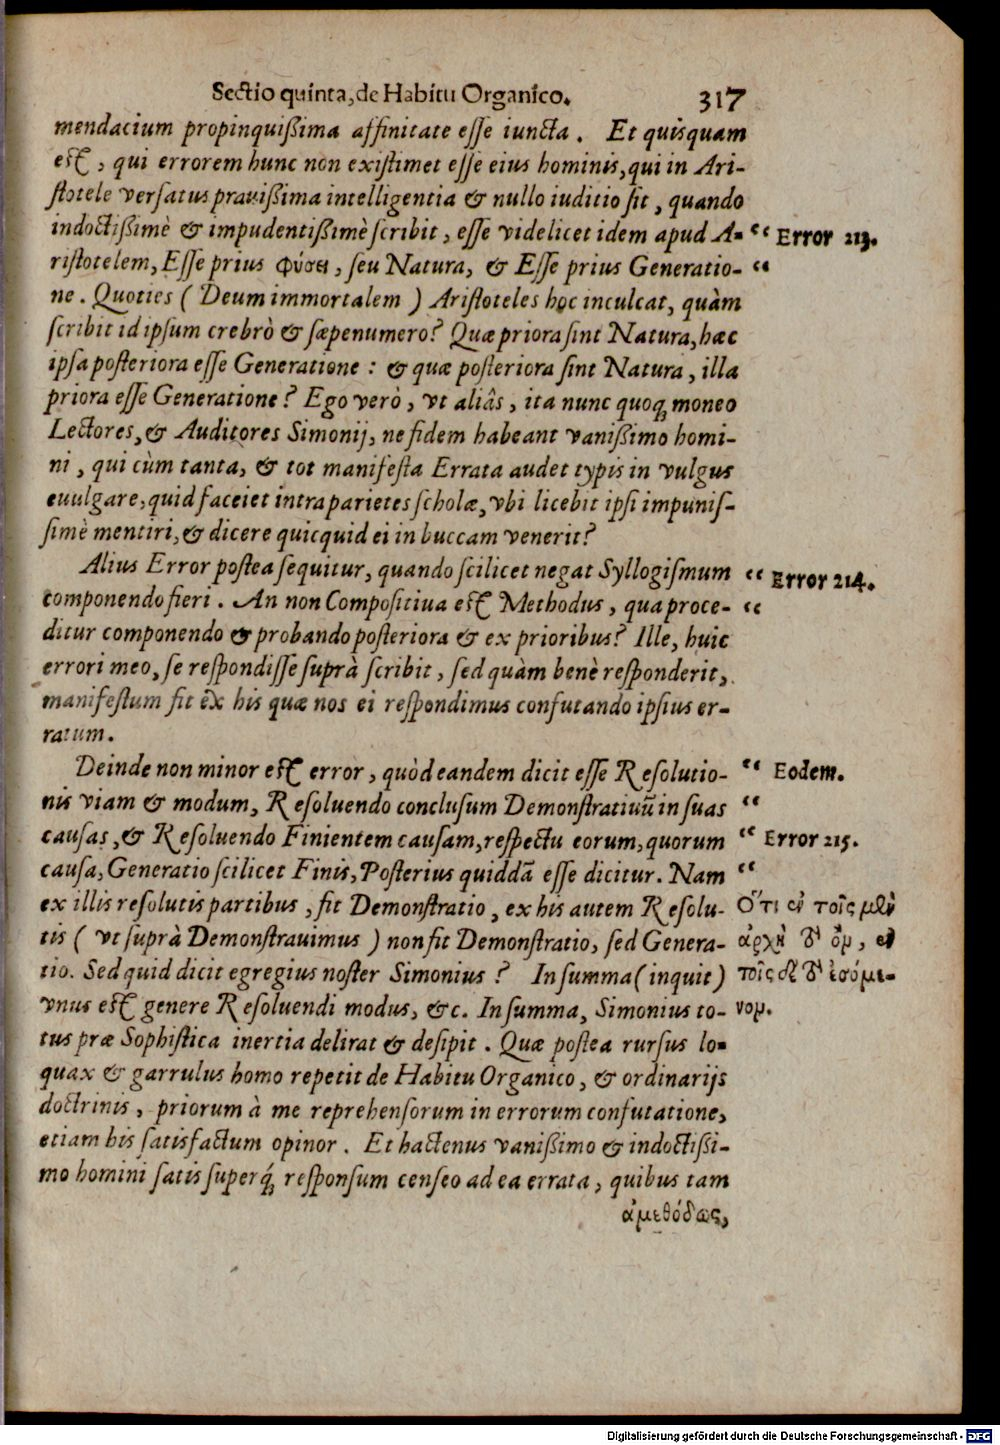 Sectio quinta, de Habitu Organico. 317
mendacium propinquißima affinitate esse iuncta. Et quisquam
est, qui errorem hunc non existimet esse eius hominis, qui in Ari-
stotele versatus prauißima intelligentia & nullo iuditio sit, quando
indoctißimè & impudentißimè scribit, esse videlicet idem apud A- “ Error 213.
ristotelem, Esse prius φύσει, seu Natura, & Esse prius Generatio- “
ne. Quoties (Deum immortalem) Aristoteles hoc inculcat, quàm
scribit id ipsum crebrò & sæpenumero? Quæ priora sint Natura, hæc
ipsa posteriora esse Generatione: & quæ posteriora sint Natura, illa
priora esse Generatione? Ego verò, vt aliâs, ita nunc quoq; moneo
Lectores, & Auditores Simonij, ne fidem habeant vanißimo homi-
ni, qui cùm tanta, & tot manifesta Errata audet typis in vulgus
euulgare, quid faceiet intra parietes scholæ, vbi licebit ipsi impunis-
simè mentiri, & dicere quicquid ei in buccam venerit?
Alius Error postea sequitur, quando scilicet negat Syllogismum “ Error 214.
componendo fieri. An non Compositiua est Methodus, qua proce- “
ditur componendo & probando posteriora & ex prioribus? Ille, huic
errori meo, se respondisse suprà scribit, sed quàm benè responderit,
manifestum fit ex his quæ nos ei respondimus confutando ipsius er-
ratum.
Deinde non minor est error, quòd eandem dicit esse Resolutio- “ Eodem.
nis viam & modum, Resoluendo conclusum Demonstratiuũ in suas “
causas, & Resoluendo Finientem causam, respectu eorum, quorum “ Error 215.
causa, Generatio scilicet Finis, Posterius quiddã esse dicitur. Nam “
ex illis resolutis partibus, fit Demonstratio, ex his autem Resolu- Ὅτι ἐν τοῖς μὲν
tis (vt suprà Demonstrauimus) non fit Demonstratio, sed Genera- ἀρχὴ τὸ ὂν, ἐν
tio. Sed quid dicit egregius noster Simonius? In summa (inquit) τοῖς δὲ τὸ ἐσόμε-
vnus est genere Resoluendi modus, &c. In summa, Simonius to- νον.
tus præ Sophistica inertia delirat & desipit. Quæ postea rursus lo-
quax & garrulus homo repetit de Habitu Organico, & ordinarijs
doctrinis, priorum à me reprehensorum in errorum confutatione,
etiam his satisfactum opinor. Et hactenus vanißimo & indoctißi-
mo homini satis superq; responsum censeo ad ea errata, quibus tam
ἀμεθόδως,
Digitalisierung gefördert durch die Deutsche Forschungsgemeinschaft - DFG